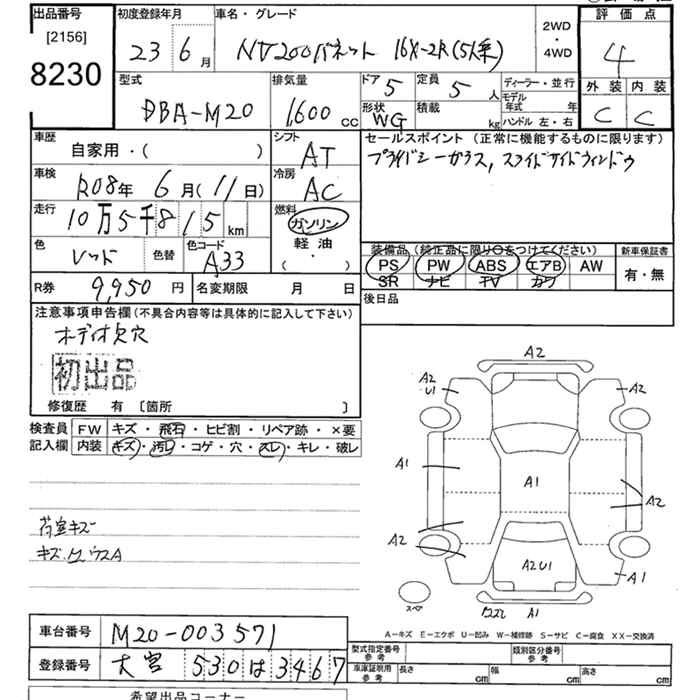 出品番号
[2156]
8230
初度登録年月
23年6月
車名・グレード
NV200バネット 16X-2R(5人乗)
2WD
・
4WD
評価点
4
外装 内装
C C
型式
DBA-M20
排気量
1600 cc
ドア 5
形状 WG
定員 5 人
積載 kg
ディーラー・並行
モデル年式 年
ハンドル 左・右
車歴
自家用・( )
シフト
AT
セールスポイント (正常に機能するものに限ります)
プライバシーガラス, スライドサイドウィンドウ
車検
R08年 6月(11日)
冷房
AC
走行
10万5千815 km
燃料
ガソリン
軽油
( ・ )
色
レッド
色替
色コード
A33
装備品 (純正品に限り○をつけてください)
PS PW ABS エアB AW
SR ナビ TV カワ
新車保証書
有・無
R券 9,950円
名変期限 月 日
後日品
注意事項申告欄(不具合内容等は具体的に記入して下さい)
オーディオ欠穴
初出品
修復歴 有 [箇所 ]
検査員記入欄
FW キズ・飛石・ヒビ割・リペア跡・×要
内装 キズ・汚れ・コゲ・穴・スレ・キレ・破レ
荷室キズ
A2
A2
U1
A2
A1
A1
A2
A2
A2U1
A1
スペア
A1
A-キズ E-エクボ U-凹み W-補修跡 S-サビ C-腐食 XX-交換済
車台番号 M20-003571
登録番号 大宮 530 は 3467
型式指定番号 参考
類別区分番号 参考
車庫証明用 参考
長さ cm
幅 cm
高さ cm
希望出品コーナー